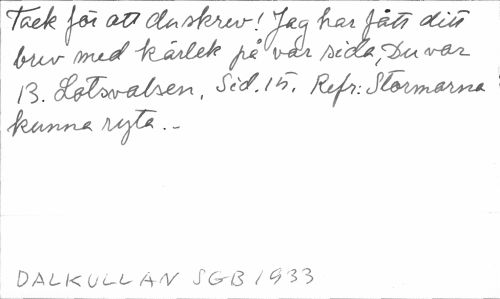 Tack för att du skrev! Jag har fått ditt
brev med kärlek på var sida, Du var
13. Lotsvalsen, Sid. 15. Refr: Stormarna
kunna ryta...
DALKULLAN SGB 1933